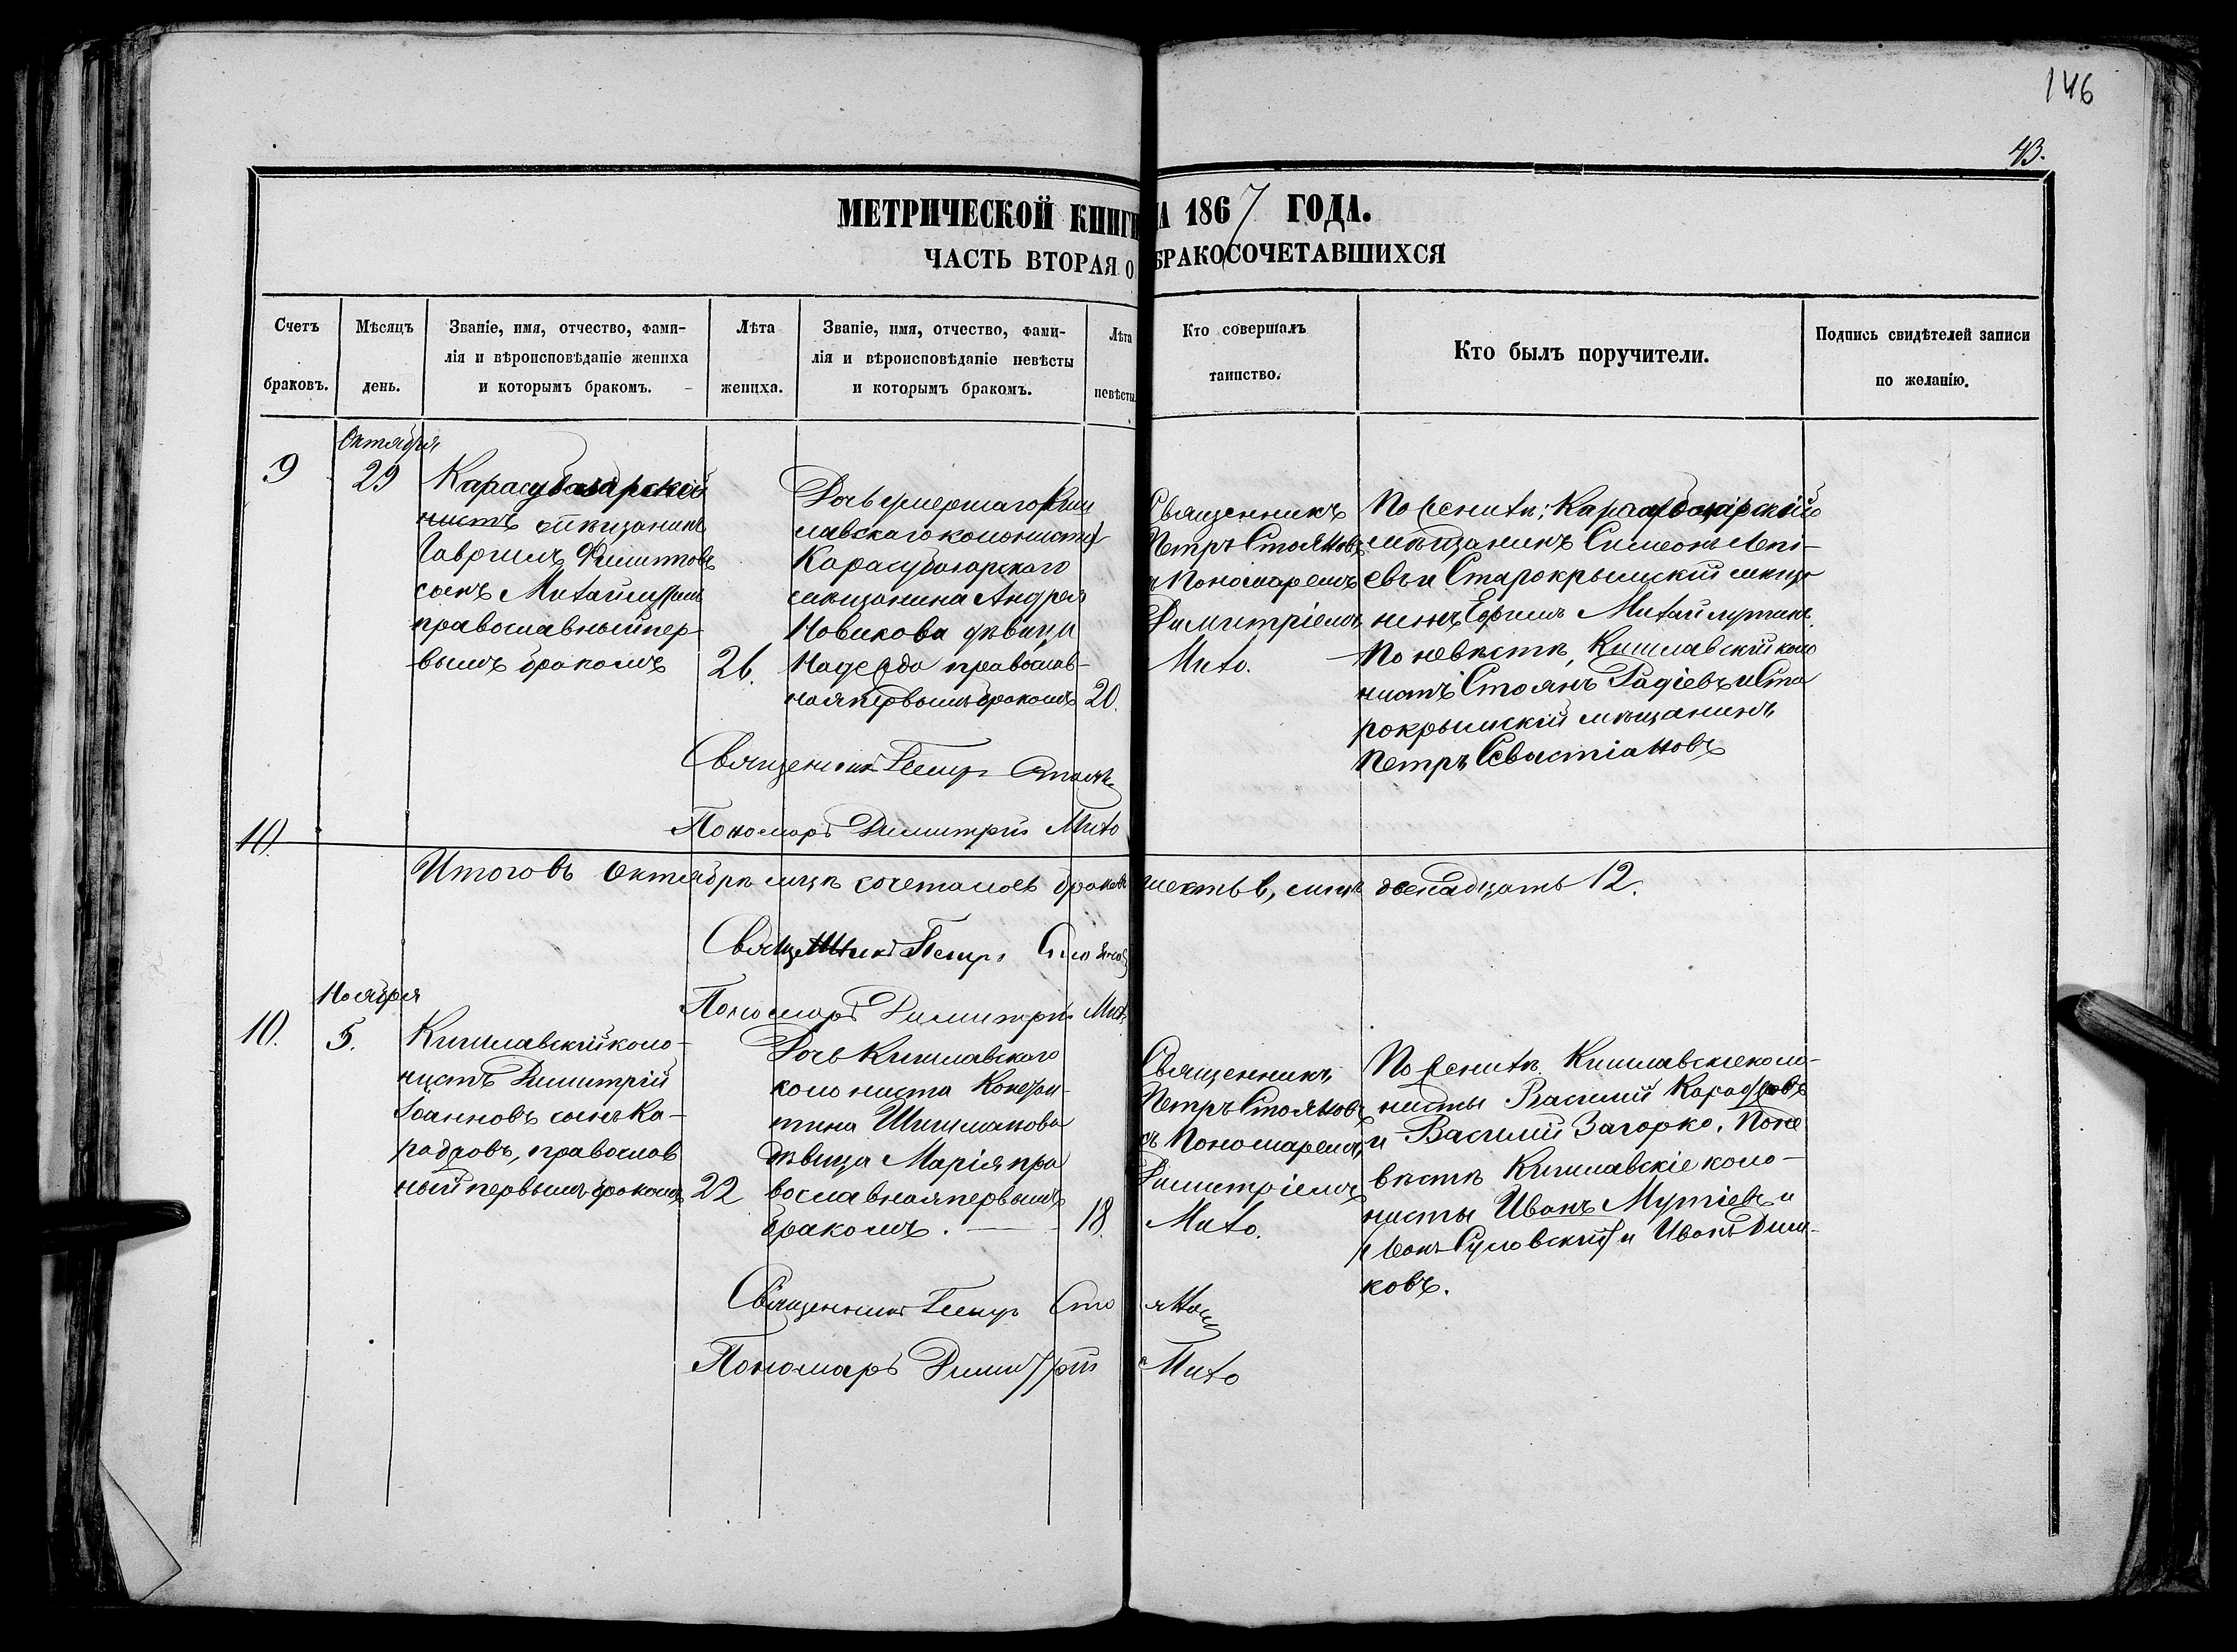 146
43.
МЕТРИЧЕСКОЙ КНИГИ НА 1867 ГОДА.
ЧАСТЬ ВТОРАЯ О БРАКОСОЧЕТАВШИХСЯ
Счетъ браковъ.
Мѣсяцъ день.
Званіе, имя, отчество, фами-
лія и вѣроисповѣданіе жениха
и которымъ бракомъ.
Лѣта жениха.
Званіе, имя, отчество, фами-
лія и вѣроисповѣданіе невѣсты
и которымъ бракомъ.
Лѣта невѣсты.
Кто совершалъ
таинство.
Кто былъ поручители.
Подпись свидѣтелей записи
по желанію.
9
Октября
29
Карасубазарскій
нистъ мѣщанинъ
Гавріилъ Филиповъ
сынъ
православный пер-
вымъ бракомъ
26.
Дочь умершаго Киш
лавскаго колониста
Карасубазарскаго
мѣщанина Андрея
Новикова дѣвица
Надежда православ-
ная первымъ бракомъ
20.
Священникъ
Петръ Стояновъ
и Пономаремъ
Димитріемъ
Мито.
По женихѣ: Карасубазарскій
мѣщанинъ Симеонъ Лепі-
евъ и Старокрымскій мѣща
нинъ Ефимъ
По невѣстѣ, Кишлавскій коло
нистъ Стоянъ Радіевъ и Ста
рокрымскій мѣщанинъ
Петръ Севастіановъ
Священникъ Петръ Стоянъ
Пономарь Димитрій Мито
10.
Итого въ Октябрѣ мцѣ сочеталось браковъ шесть 6, лицъ двенадцать 12.
Священникъ Петръ Стоянов
Пономарь Димитрій Мит.
10.
Ноября
5.
Кишлавскій коло-
нистъ Димитрій
Іоанновъ сынъ Ка-
раджовъ, православ
ный первымъ бракомъ
22
Дочь Кишлавскаго
колониста Констан-
тина Шишманова
дѣвица Марія пра
вославная первымъ
бракомъ.
18.
Священникъ
Петръ Стояновъ
съ Пономаремъ
Димитріемъ
Мито.
По женихѣ Кишлавскіе коло-
нисты Василій Караджовъ
и Василій Загорко. По не
вѣстѣ Кишлавскіе коло-
нисты Иванъ Мутіевъ и
и Иванъ Дим-
ковъ.
Священникъ Петръ Стояновъ
Пономарь Димитрій Мито